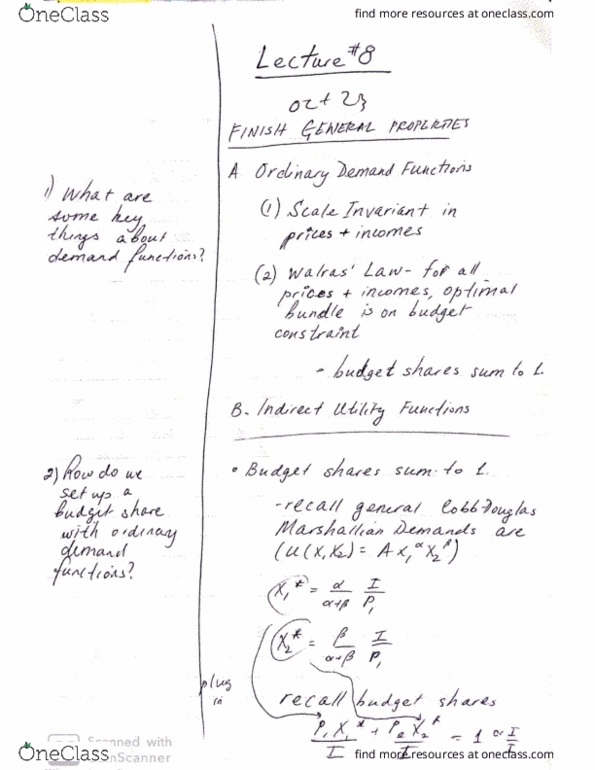 OneClass
find more resources at oneclass.com
Lecture #8
oct 23
FINISH GENERAL PROPERTIES
1) What are
some key
things about
demand functions?
A Ordinary Demand Functions
(1) Scale Invariant in
prices + incomes
(2) Walras' Law- for all
prices + incomes, optimal
bundle is on budget
constraint
- budget shares sum to 1.
B. Indirect Utility Functions
2) How do we
set up a
budget share
with ordinary
demand
functions?
• Budget shares sum to 1.
-recall general Cobb-Douglas
Marshallian Demands are
(U(X1X2) = A X1^α X2^β)
X1* = α/(α+β) I/P1
X2* = β/(α+β) I/P1
plug
in
recall budget shares
P1X1*/I + P2X2*/I = 1 or I/I
Scanned with
OneClass
find more resources at oneclass.com